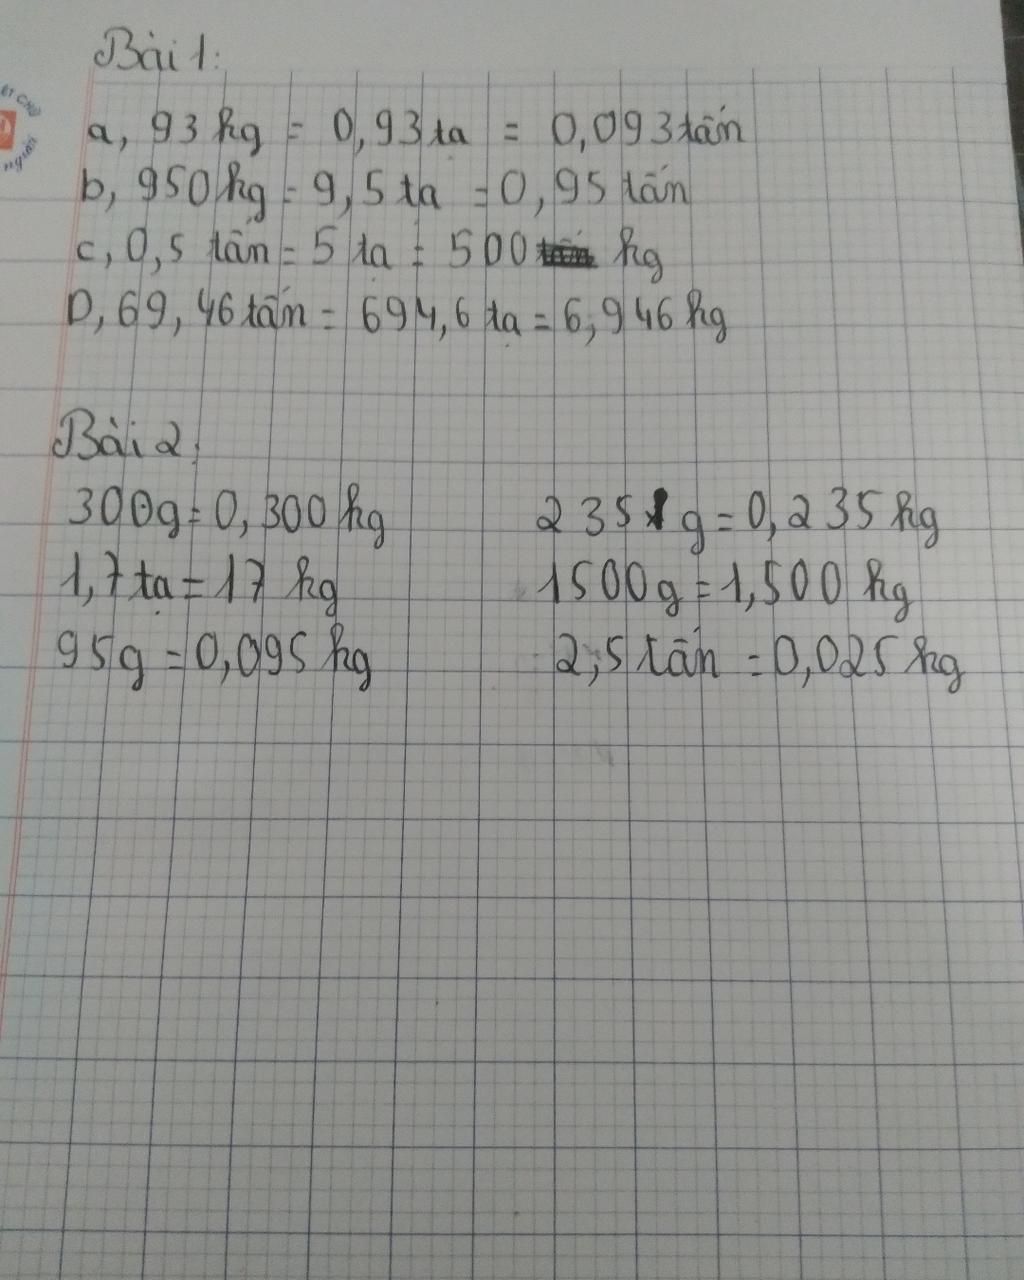 Bài 1:
a, 93 kg = 0,93 tạ = 0,093 tấn
b, 950 kg = 9,5 tạ = 0,95 tấn
c, 0,5 tấn = 5 tạ = 500 kg
D, 69,46 tấn = 694,6 tạ = 6,946 kg
Bài 2:
300g = 0,300 kg 235 g = 0,235 kg
1,7 tạ = 17 kg 1500g = 1,500 kg
95g = 0,095 kg 2,5 tấn = 0,025 kg